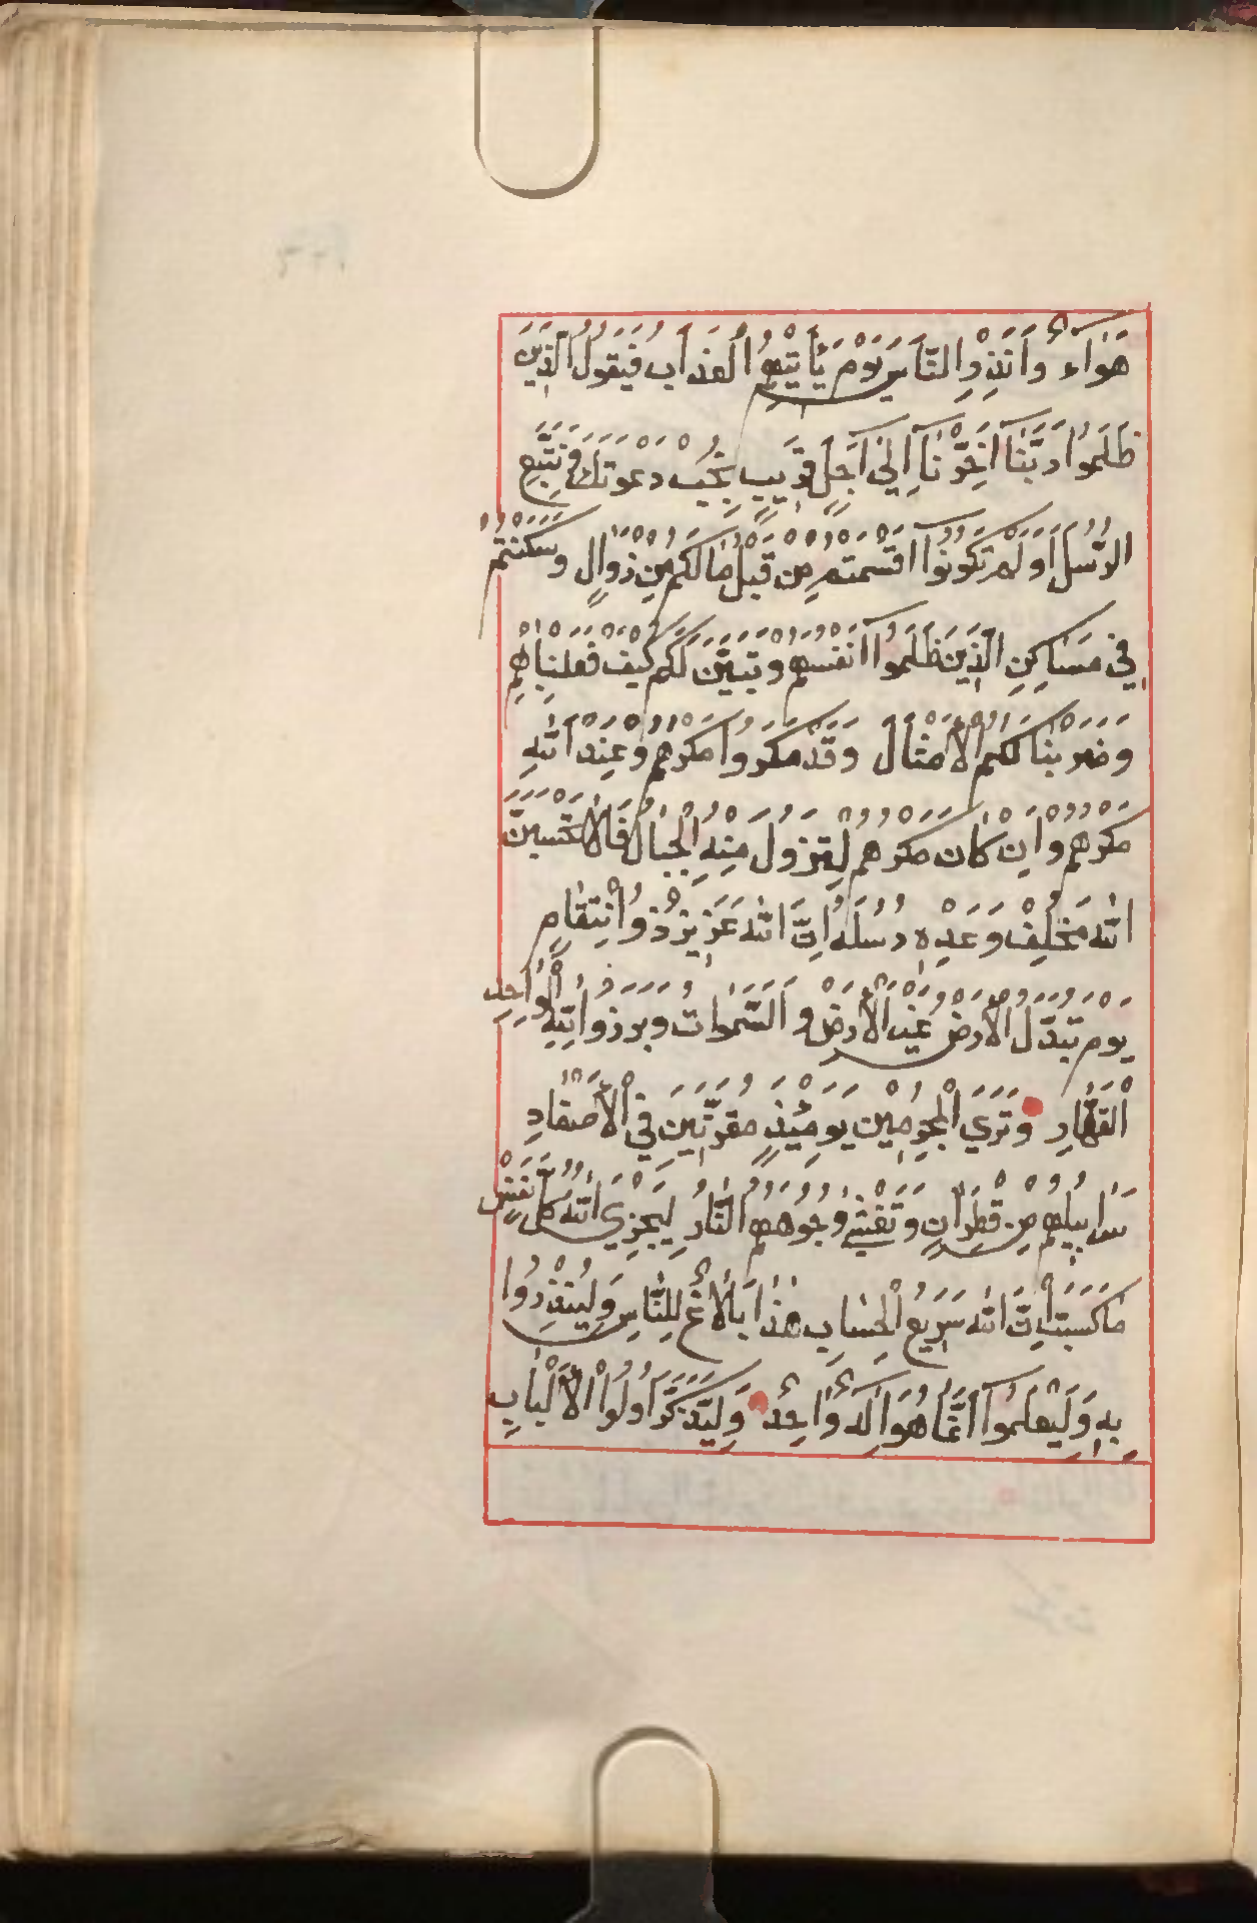 هَوَآءٌ وَأَنْذِرِ النَّاسَ يَوْمَ يَأْتِيهِمُ الْعَذَابُ فَيَقُولُ الَّذِينَ
ظَلَمُوا رَبَّنَآ أَخِّرْنَآ إِلَىٰ أَجَلٍ قَرِيبٍ نُجِبْ دَعْوَتَكَ وَنَتَّبِعِ
الرُّسُلَ أَوَلَمْ تَكُونُوٓا أَقْسَمْتُمْ مِنْ قَبْلُ مَالَكُمْ مِنْ زَوَالٍ وَسَكَنْتُمْ
فِي مَسَاكِنِ الَّذِينَ ظَلَمُوٓا أَنْفُسَهُمْ وَتَبَيَّنَ لَكُمْ كَيْفَ فَعَلْنَا بِهِمْ
وَضَرَبْنَا لَكُمُ الْأَمْثَالَ وَقَدْ مَكَرُوا مَكْرَهُمْ وَعِنْدَ اللّٰهِ
مَكْرُهُمْ وَإِنْ كَانَ مَكْرُهُمْ لِتَزُولَ مِنْهُ الْجِبَالُ فَلَا تَحْسَبَنَّ
اللّٰهَ مُخْلِفَ وَعْدِهِ رُسُلَهُ إِنَّ اللّٰهَ عَزِيزٌ ذُو انْتِقَامٍ
يَوْمَ تُبَدَّلُ الْأَرْضُ غَيْرَ الْأَرْضِ وَالسَّمٰوَاتُ وَبَرَزُوا لِلّٰهِ الْوَاحِدِ
الْقَهَّارِ وَتَرَي الْمُجْرِمِينَ يَوْمَئِذٍ مُقَرَّنِينَ فِي الْأَصْفَادِ
سَرَابِيلُهُمْ مِنْ قَطِرَانٍ وَتَغْشَىٰ وُجُوهَهُمُ النَّارُ لِيَجْزِيَ اللّٰهُ كُلَّ نَفْسٍ
مَا كَسَبَتْ إِنَّ اللّٰهَ سَرِيعُ الْحِسَابِ هٰذَا بَلَاغٌ لِلنَّاسِ وَلِيُنْذَرُوا
بِهِ وَلِيَعْلَمُوٓا أَنَّمَا هُوَ إِلٰهٌ وَاحِدٌ وَلِيَذَّكَّرَ أُولُوا الْأَلْبَابِ